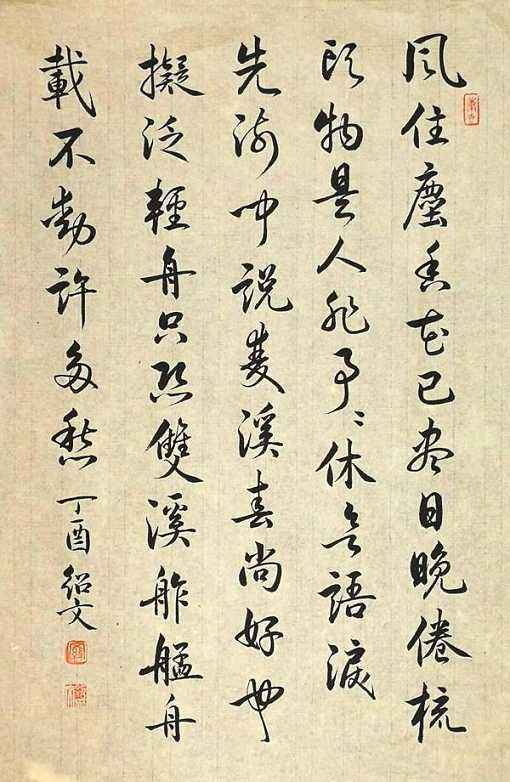 風住塵香花已盡日晚倦梳
頭物是人非事〻休欲語淚
先流聞說雙溪春尚好也
擬泛輕舟只恐雙溪舴艋舟
載不動許多愁 丁酉 紹文